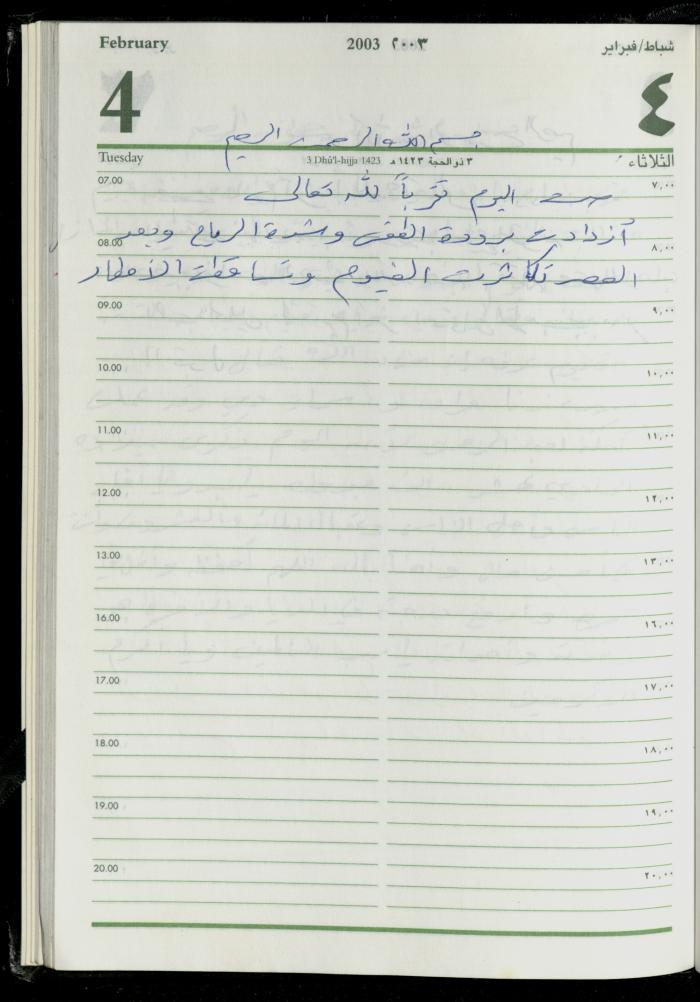 February 2003 ٢٠٠٣ شباط/فبراير
4 ٤
بسم الله الرحمن الرحيم
Tuesday 3 Dhû'l-hijja 1423 ٣ ذو الحجة ١٤٢٣ هـ الثلاثاء
07.00 ٧,٠٠
اليوم تقرباً لله تعالى
أزدادت برودة الطقس وشدة الرياح وبعد
08.00 ٨,٠٠
العصر تكاثرت الغيوم وتساقطت الأمطار
09.00 ٩,٠٠
10.00 ١٠,٠٠
11.00 ١١,٠٠
12.00 ١٢,٠٠
13.00 ١٣,٠٠
16.00 ١٦,٠٠
17.00 ١٧,٠٠
18.00 ١٨,٠٠
19.00 ١٩,٠٠
20.00 ٢٠,٠٠